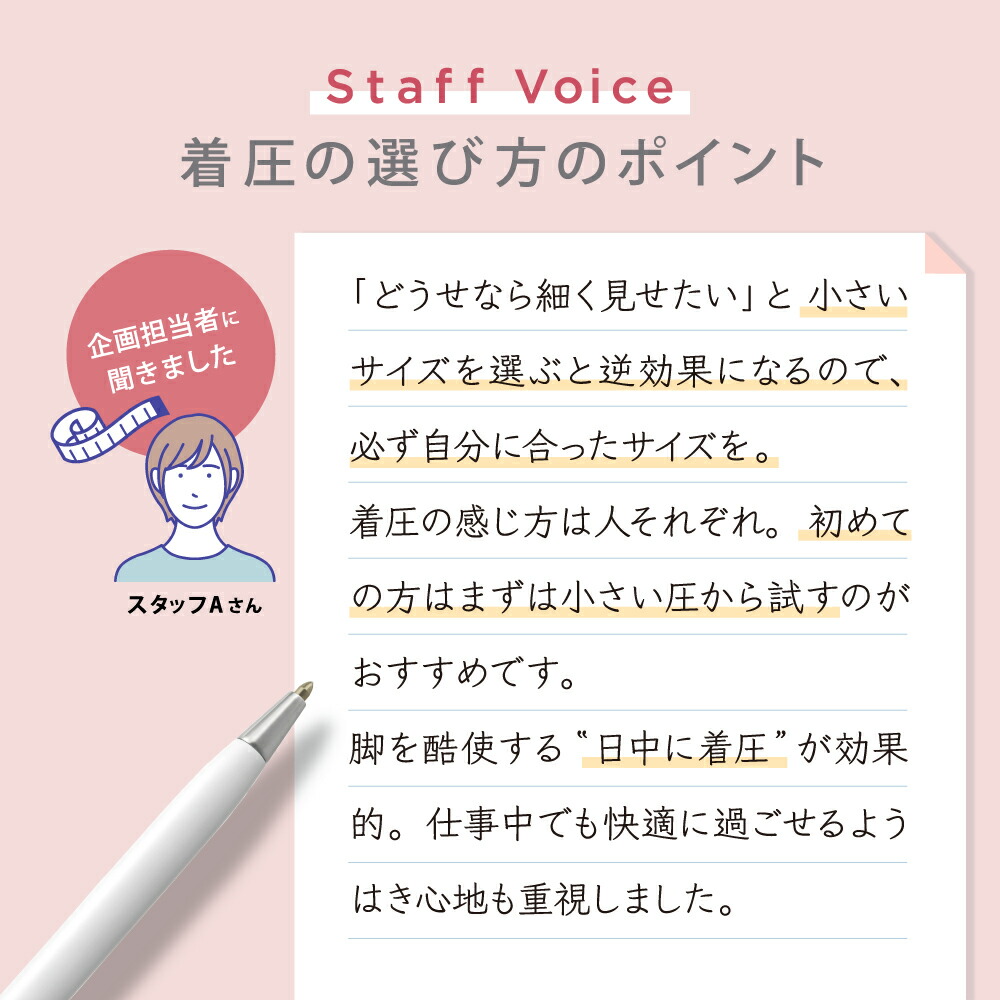 Staff Voice
着圧の選び方のポイント
企画担当者に
聞きました
スタッフAさん
「どうせなら細く見せたい」と 小さい
サイズを選ぶと逆効果になるので、
必ず自分に合ったサイズを。
着圧の感じ方は人それぞれ。 初めて
の方はまずは小さい圧から試すのが
おすすめです。
脚を酷使する〝日中に着圧〟が効果
的。仕事中でも快適に過ごせるよう
はき心地も重視しました。